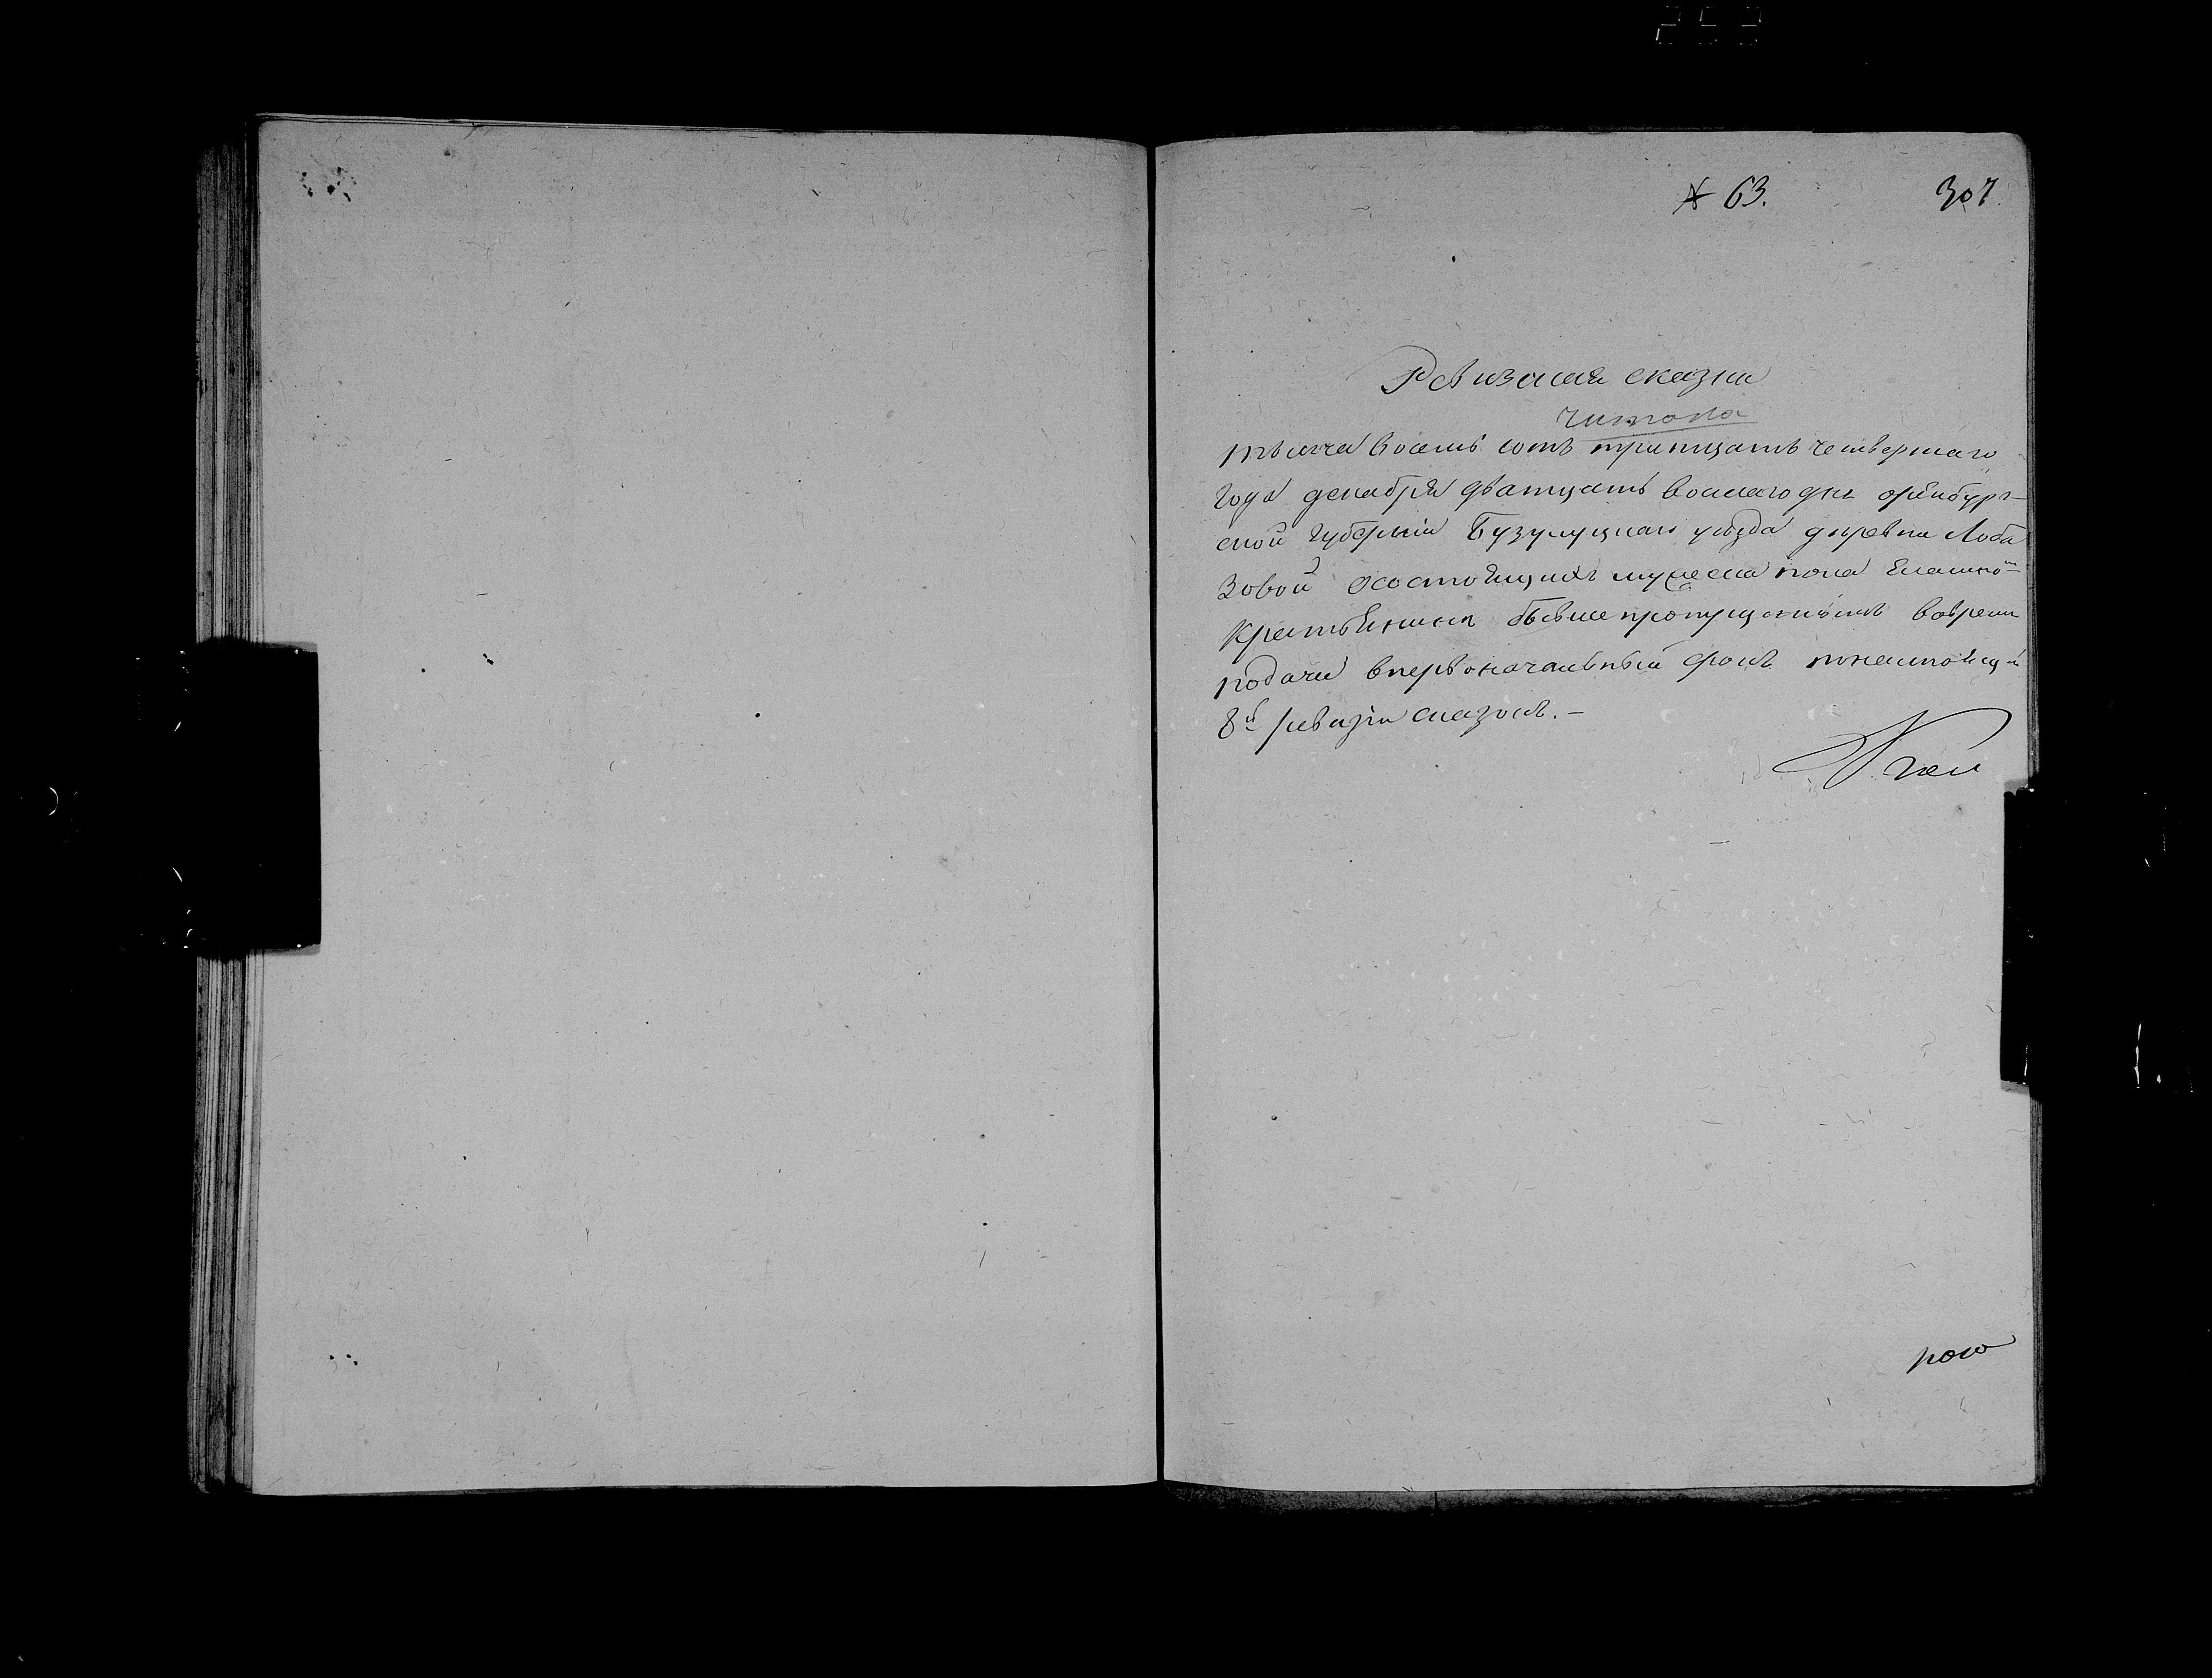 № 63. 307
Ревизская сказка
читана
тысяча восемь сотъ тритцать четвертаго
года декабря дватцать восмаго дня оренбург-
ской губерніи Бузулуцкаго уѣзда деревни Лоба
зовой о состоящихъ мужеска пола
крестьянинъ бывше пропущенныхъ вовремя
подачи впервоначальный срокъ понастоящій
8й ревизіи сказокъ.-